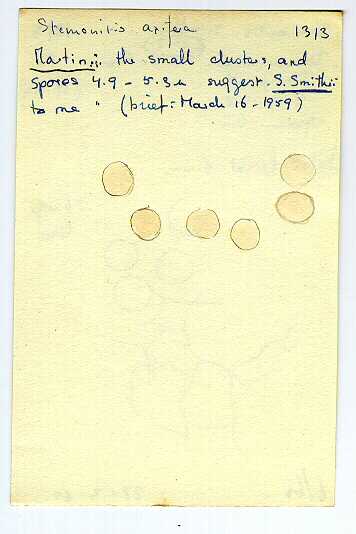 Stemonitis axifera 1313
Martin: the small clusters, and
spores 4.9 - 5.3 u suggest S. Smithii
to me " (brief: March 16 - 1959)